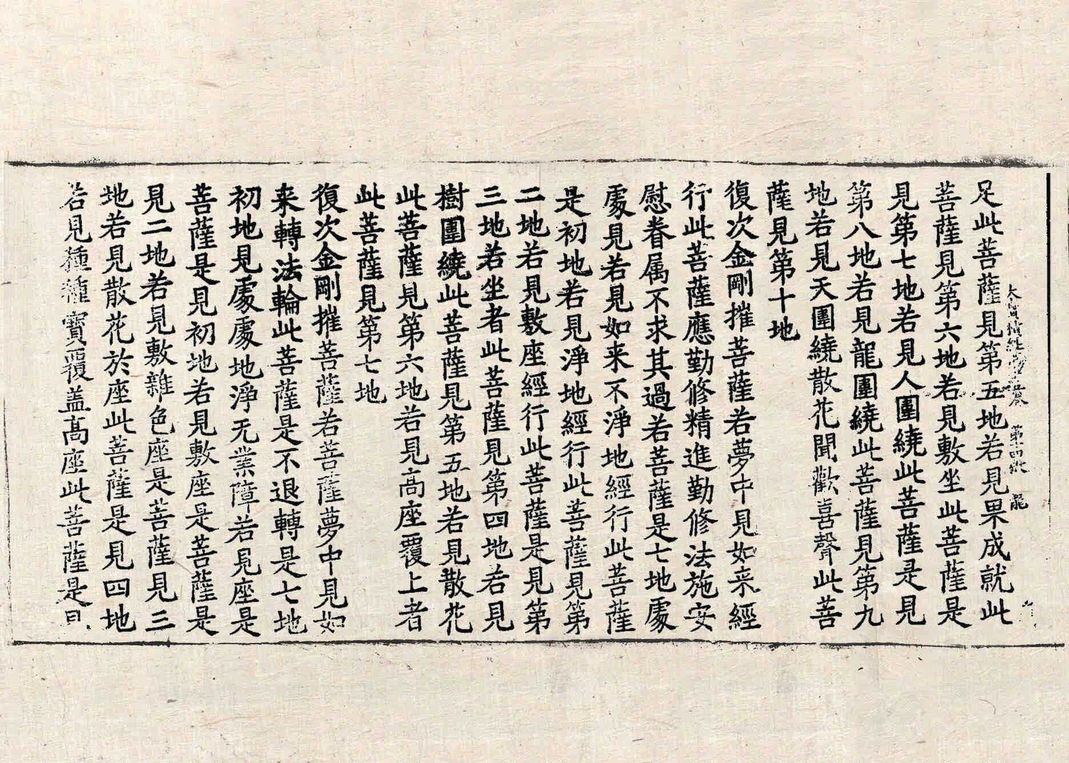 大寶積經第十五卷 第四紙 龍
足此菩薩見第五地若見果成就此
菩薩見第六地若見敷坐此菩薩是
見第七地若見人圍繞此菩薩是見
第八地若見龍圍繞此菩薩見第九
地若見天圍繞散花聞歡喜聲此菩
薩見第十地
復次金剛摧菩薩若夢中見如来經
行此菩薩應勤修精進勤修法施安
慰眷属不求其過若菩薩是七地處
處見若見如来不淨地經行此菩薩
是初地若見淨地經行此菩薩見第
二地若見敷座經行此菩薩是見第
三地若坐者此菩薩見第四地若見
樹圍繞此菩薩見第五地若見散花
此菩薩見第六地若見高座覆上者
此菩薩見第七地
復次金剛摧菩薩若菩薩夢中見如
来轉法輪此菩薩是不退轉是七地
初地見處處地淨无業障若見座是
菩薩是見初地若見敷座是菩薩是
見二地若見敷雜色座是菩薩見三
地若見散花於座此菩薩是見四地
若見種種寶覆盖高座此菩薩是見